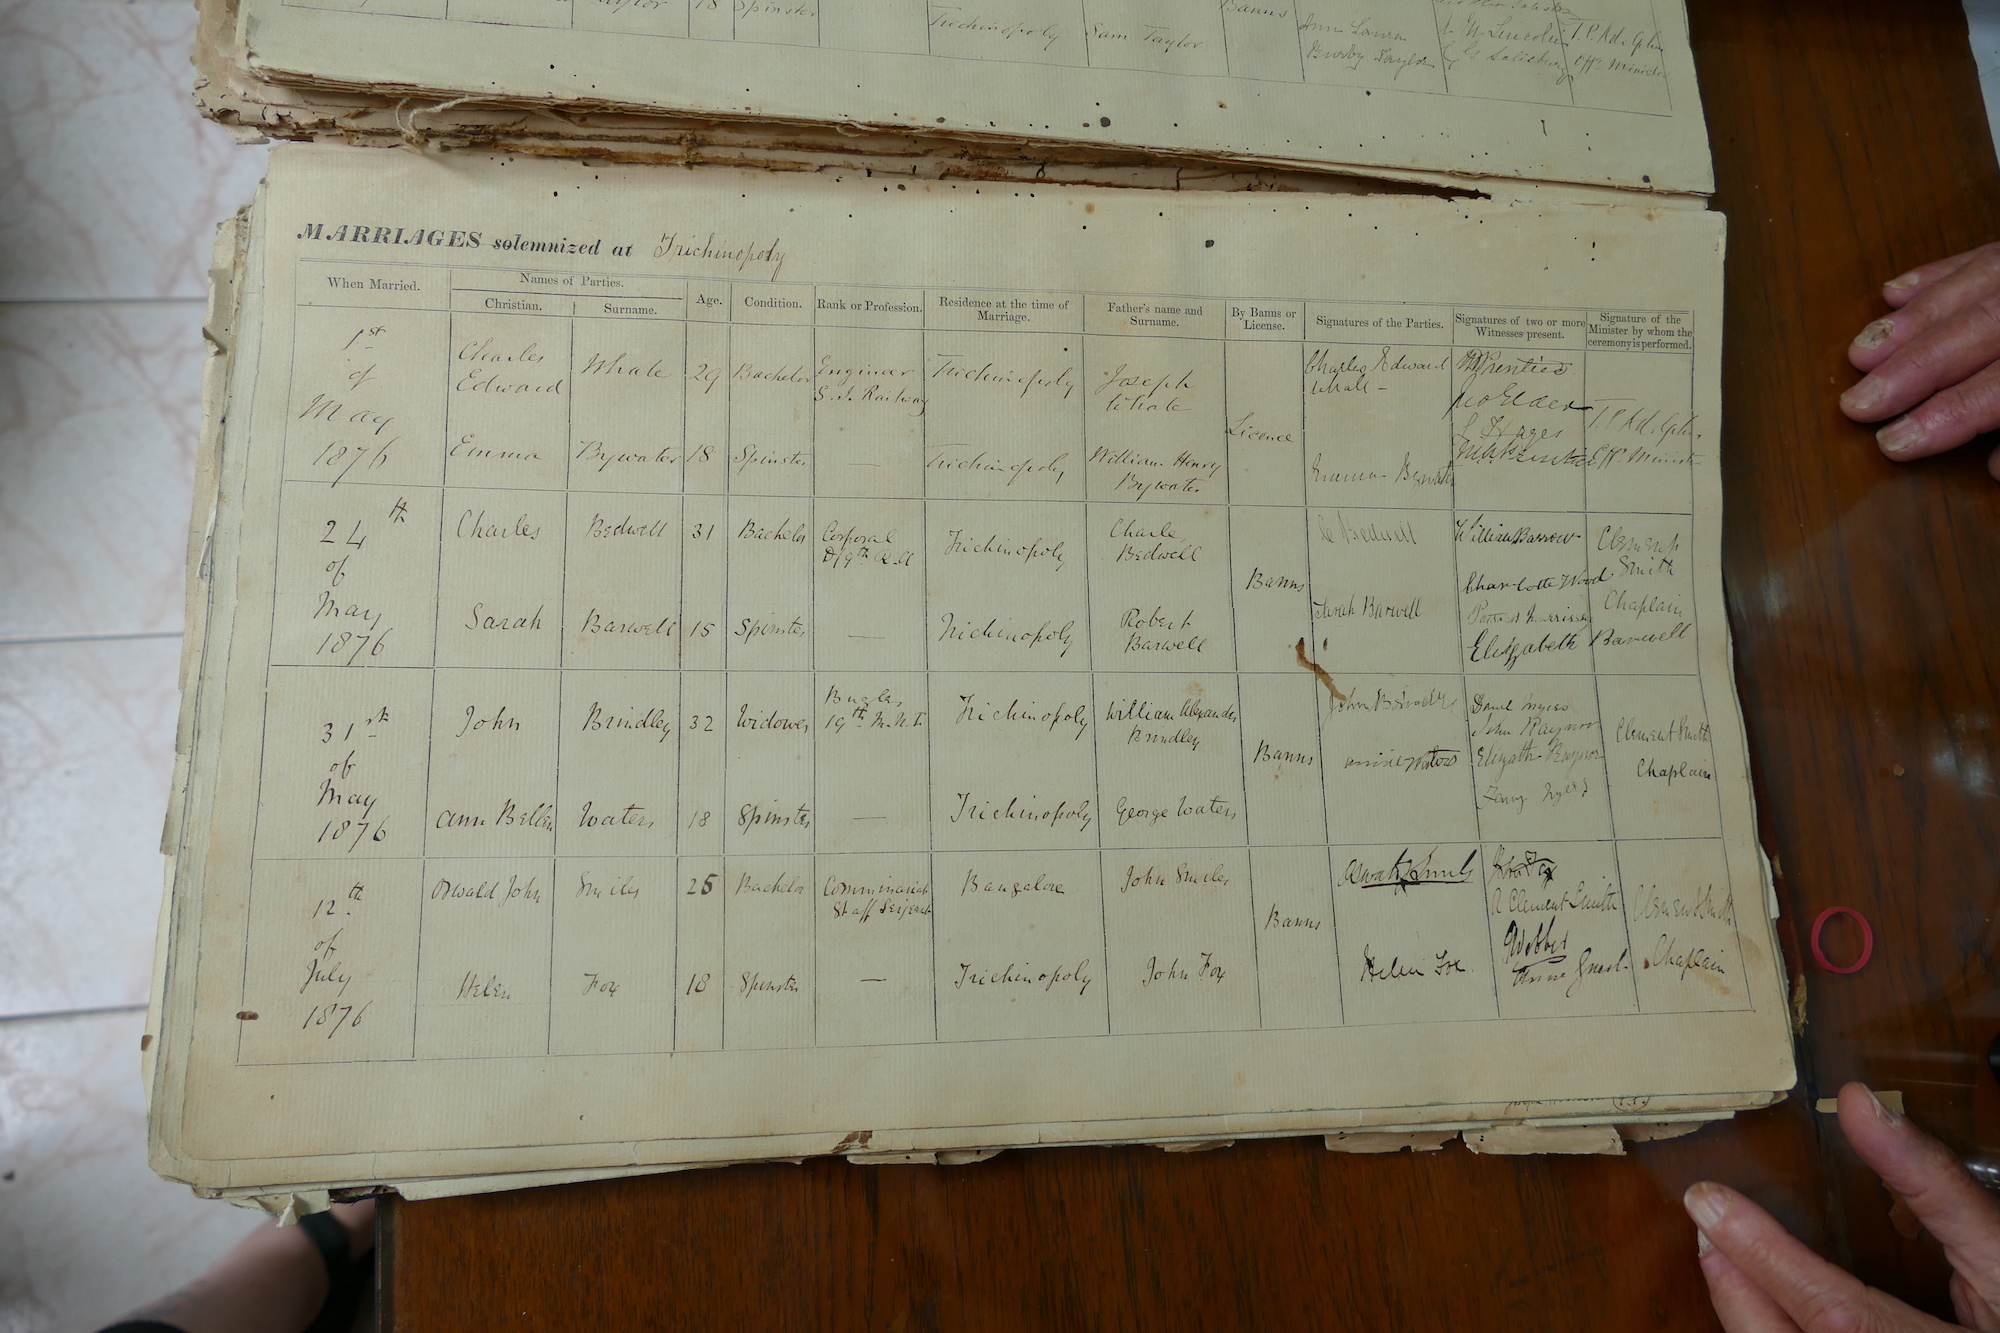 Taylor 18 Spinster Banns
Trichinopoly Sam Taylor Ann Laura W Lincoln T. P. Ad.
Taylor G Salisbury Offg Minister
MARRIAGES solemnized at Trichinopoly
When Married. Names of Parties. Age. Condition. Rank or Profession. Residence at the time of Marriage. Father's name and Surname. By Banns or License. Signatures of the Parties. Signatures of two or more Witnesses present. Signature of the Minister by whom the ceremony is performed.
Christian. Surname.
1st of May 1876
Charles Edward Whale 29 Bachelor Engineer S. I. Railway Trichinopoly Joseph Whale
Licence
Charles Edward Whale -
Prentice
Jno Elder
T. P. Ad.
Emma Bywater 18 Spinster Trichinopoly William Henry Bywater
Emma Bywater
Offg Minister
24th of May 1876
Charles Bedwell 31 Bachelor Corporal D/9th R.A Trichinopoly Charles Bedwell
Banns
C Bedwell
William Barrow
Clement Smith Chaplain
Sarah Barwell 15 Spinster — Trichinopoly Robert Barwell
Sarah Barwell
Charlotte Wood
Elizabeth Barwell
31st of May 1876
John Brindley 32 Widower Bugler 19th M.N.I. Trichinopoly William Alexander Brindley
Banns
John
John Raynor
Clement Smith
Chaplain
Ann Bellen Waters 18 Spinster — Trichinopoly George Waters
Waters
Raynor
12th of July 1876
Oswald John Smiles 25 Bachelor Commissariat Staff Serjeant Bangalore John Smiles
Banns
Oswald J Smiles
A Clement Smith
Clement Smith
Chaplain
Helen Fox 18 Spinster — Trichinopoly John Fox
Helen Fox
Webber
Anne